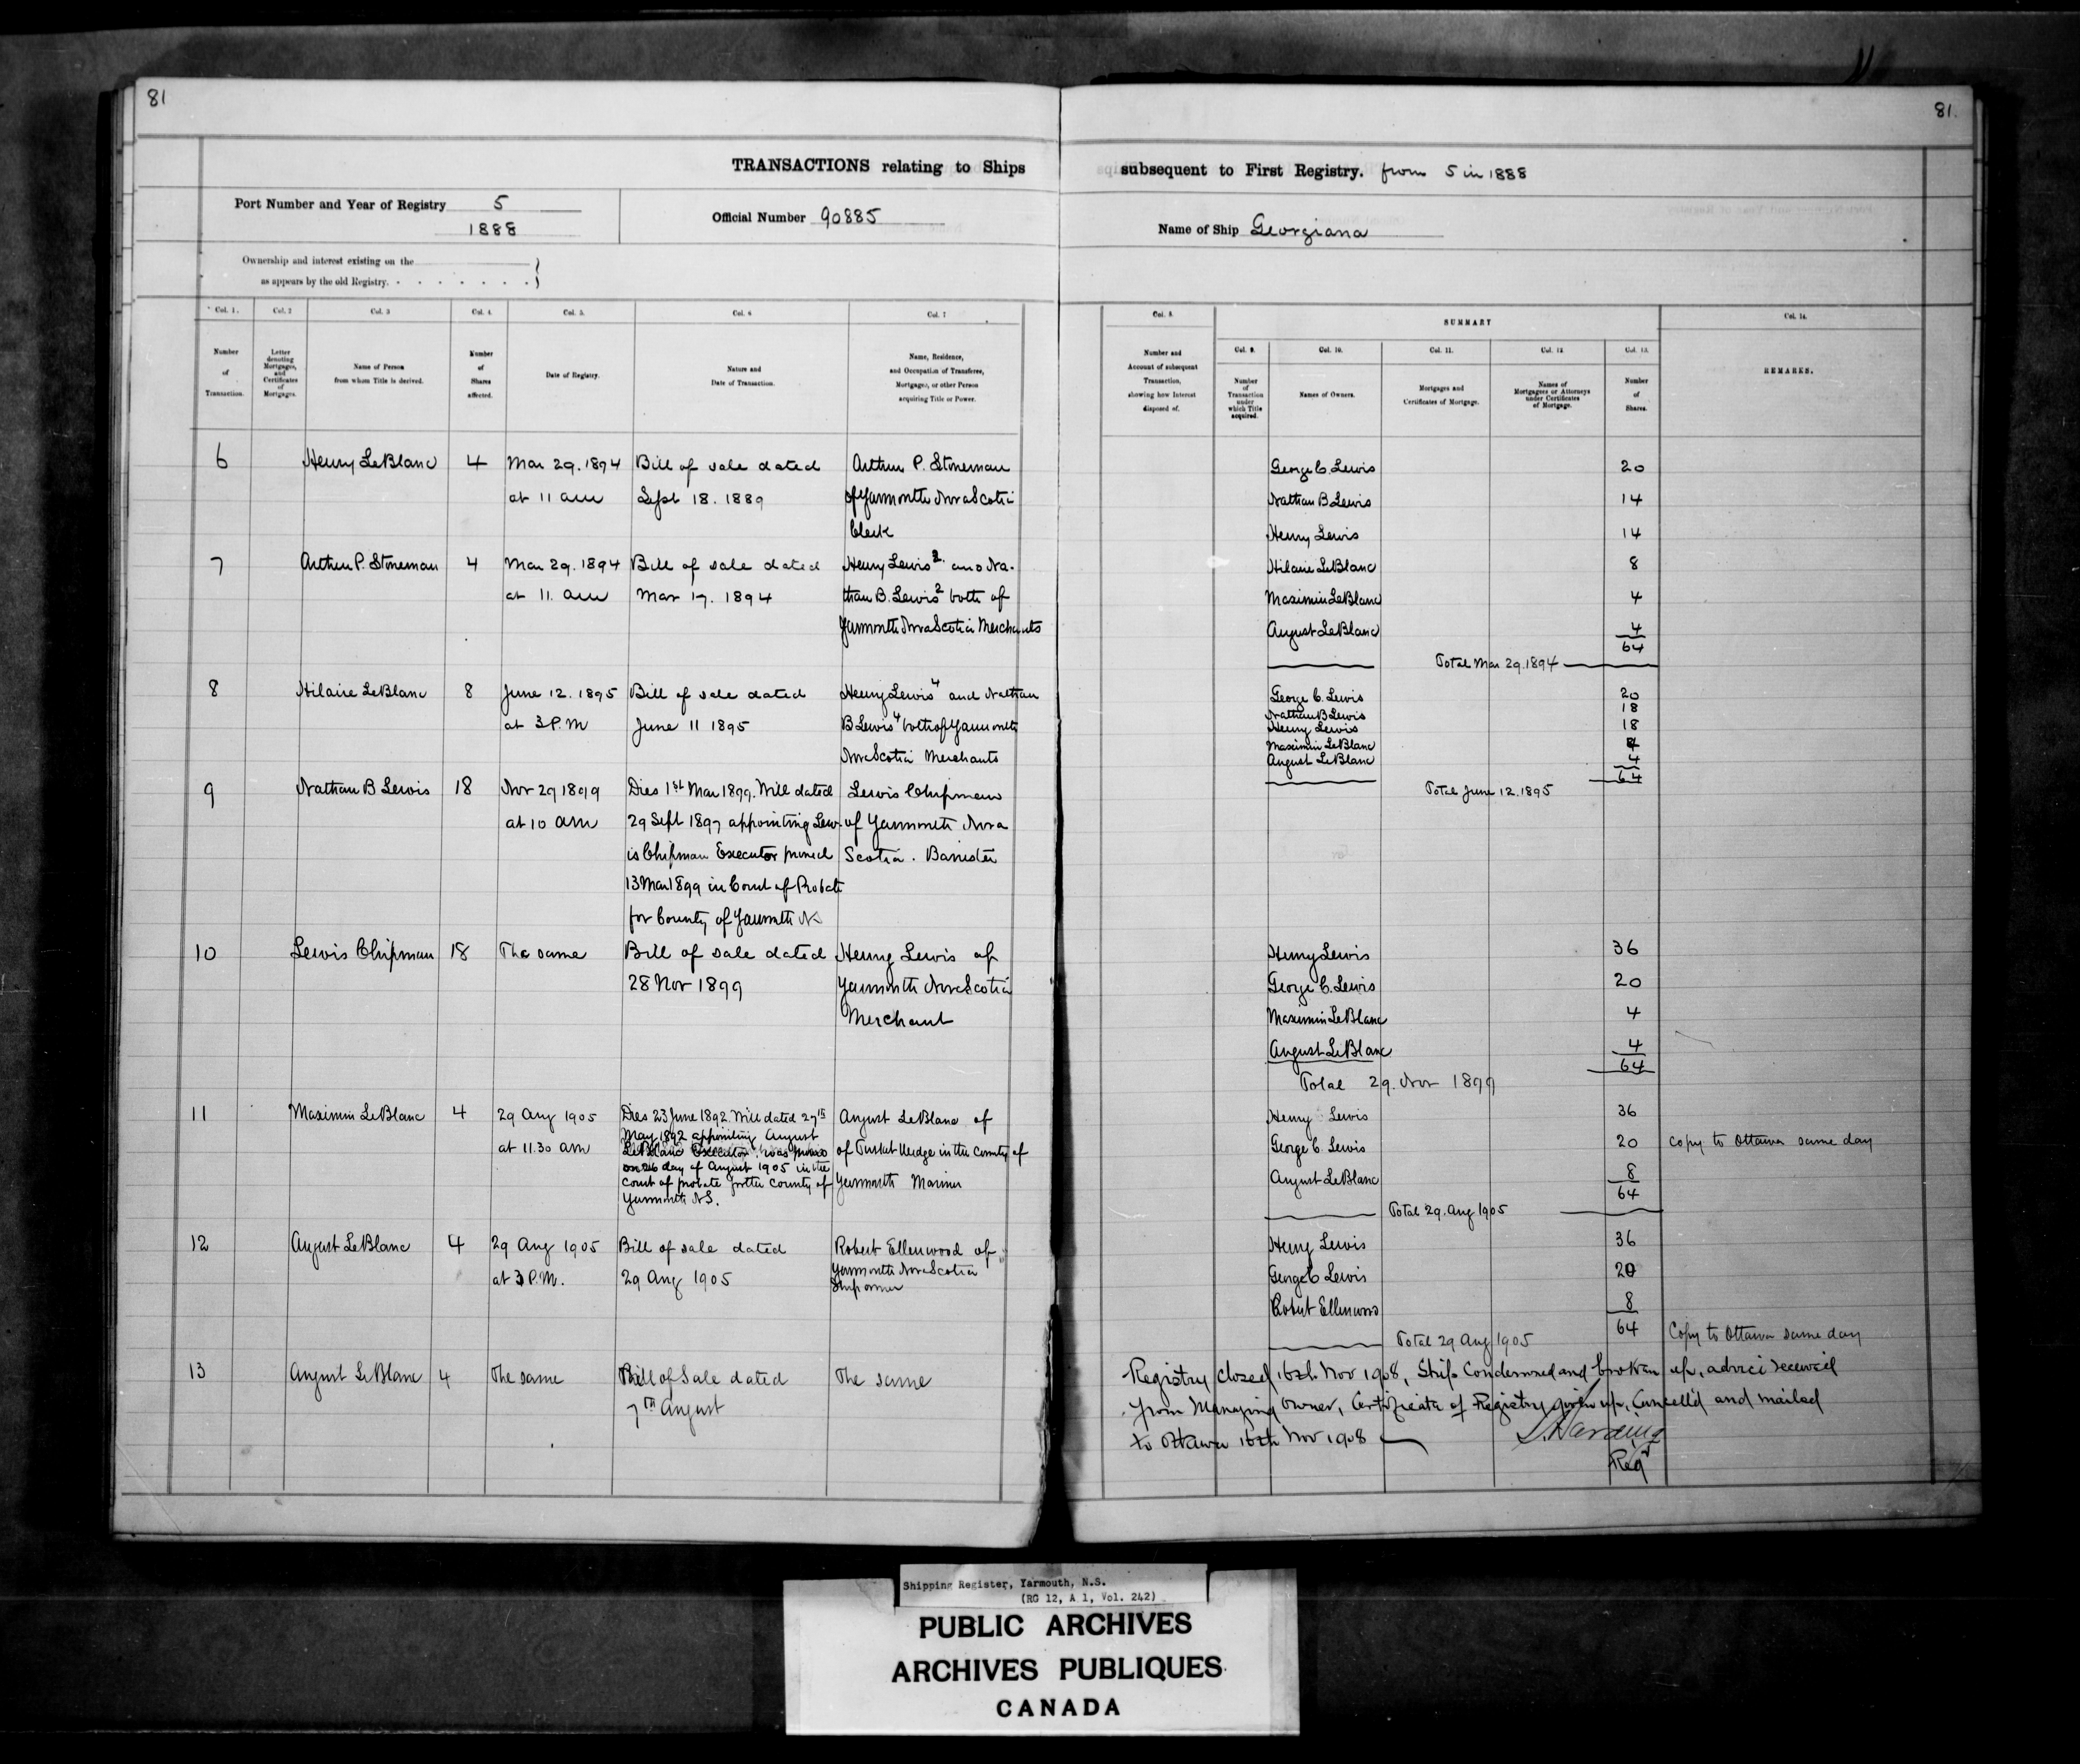 81
81.
TRANSACTIONS relating to Ships
subsequent to First Registry. from 5 in 1888
Port Number and Year of Registry 5
1888
Official Number 90885
Name of Ship Georgiana
Ownership and interest existing on the
as appears by the old Registry.
Col. 1. Col. 2 Col. 3 Col. 4 Col. 5. Col. 6 Col. 7
Number of Transaction.
Letter denoting Mortgages, and Certificates of Mortgages.
Name of Person from whom Title is derived.
Number of Shares affected.
Date of Registry.
Nature and Date of Transaction.
Name, Residence, and Occupation of Transferee, Mortgagee, or other Person acquiring Title or Power.
Col. 8.
Number and Account of subsequent Transaction, showing how Interest disposed of.
SUMMARY
Col. 9. Col. 10. Col. 11. Col. 12. Col. 13.
Number of Transaction under which Title acquired.
Names of Owners.
Mortgages and Certificates of Mortgage.
Names of Mortgagees or Attorneys under Certificates of Mortgage.
Number of Shares.
Col. 14.
REMARKS.
6 Henry LeBlanc 4 Mar 29. 1894 Bill of sale dated Arthur P. Stoneman
at 11 am Sept 18. 1889 of Yarmouth Nova Scotia
Clerk
7 Arthur P. Stoneman 4 Mar 29. 1894 Bill of sale dated Henry Lewis 2 and Na-
at 11. am Mar 17. 1894 than B. Lewis 2 both of
Yarmouth Nova Scotia Merchants
8 Hilaire LeBlanc 8 June 12. 1895 Bill of sale dated Henry Lewis 4 and Nathan
at 3 P.M June 11 1895 B Lewis 4 both of Yarmouth
Nova Scotia Merchants
9 Nathan B Lewis 18 Nov 29 1899 Dies 1st Mar 1899. Will dated Lewis Chipman
at 10 am 29 Sept 1897 appointing Lew- of Yarmouth Nova
is Chipman Executor proved Scotia. Barrister
13 Mar 1899 in Court of Probate
for County of Yarmouth NS
10 Lewis Chipman 18 The same Bill of sale dated Henry Lewis of
28 Nov 1899 Yarmouth Nova Scotia
Merchant
11 Maximin LeBlanc 4 29 Aug 1905 Dies 23 June 1892. Will dated 27th August LeBlanc of
May 1892 appointing August
at 11.30 am LeBlanc Executor, was proved of Tusket Wedge in the County of
on 26 day of August 1905 in the
Court of probate for the County of Yarmouth Mariner
Yarmouth N.S.
12 August LeBlanc 4 29 Aug 1905 Bill of sale dated Robert Ellenwood of
at 3 P.M. 29 Aug 1905 Yarmouth Nova Scotia
Shipowner
13 August LeBlanc 4 The same Bill of Sale dated The same
7th August
George C. Lewis 20
Nathan B Lewis 14
Henry Lewis 14
Hilaire LeBlanc 8
Maximin LeBlanc 4
August LeBlanc 4
64
Total Mar 29. 1894
George C. Lewis 20
Nathan B Lewis 18
Henry Lewis 18
Maximin LeBlanc 4
August LeBlanc 4
64
Total June 12. 1895
Henry Lewis 36
George C. Lewis 20
Maximin LeBlanc 4
August LeBlanc 4
64
Total 29. Nov 1899
Henry Lewis 36
George C. Lewis 20 Copy to Ottawa same day
August LeBlanc 8
64
Total 29. Aug 1905
Henry Lewis 36
George C Lewis 20
Robert Ellenwood 8
64 Copy to Ottawa same day
Total 29 Aug 1905
Registry closed 16th Nov 1908, Ship Condemned and broken up, advice received
from Managing Owner, Certificate of Registry given up, Cancell'd and mailed
to Ottawa 16th Nov 1908
Harding
Regr
Shipping Register, Yarmouth, N.S.
(RG 12, A 1, Vol. 242)
PUBLIC ARCHIVES
ARCHIVES PUBLIQUES
CANADA